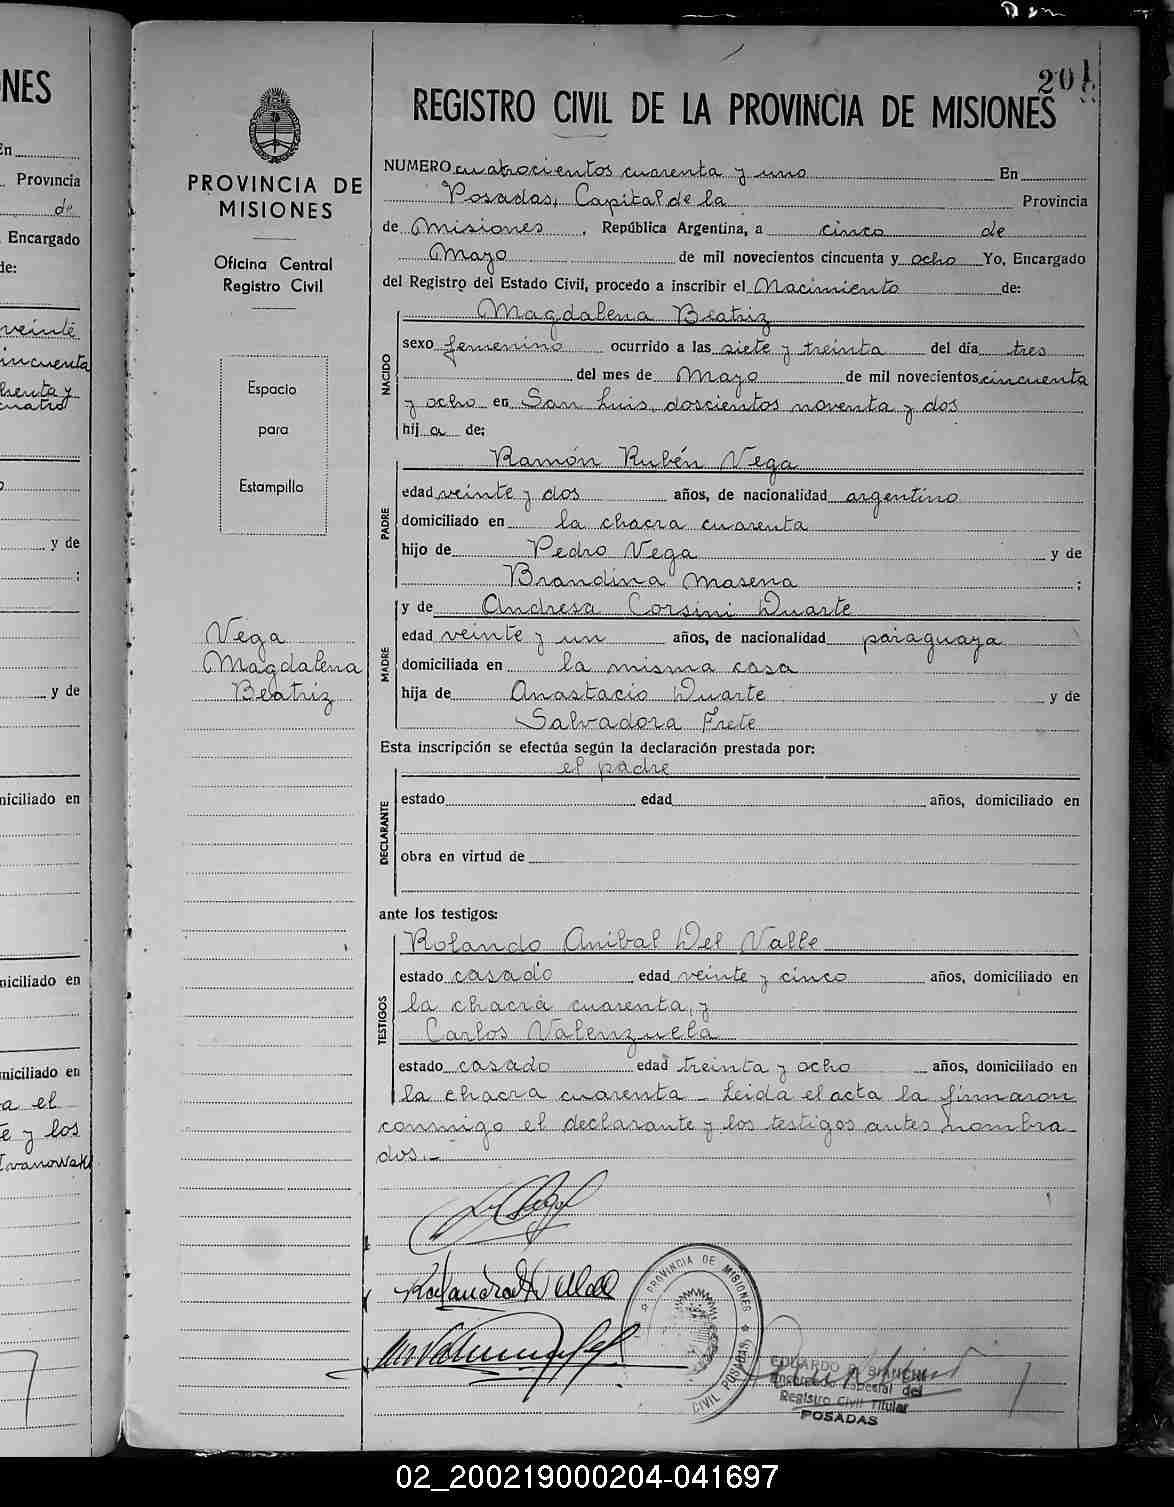 NES
En
Provincia
de
Encargado
de:
veinte
incuenta
y de
y de
niciliado en
niciliado en
niciliado en
a el
e y los
Ivanowski
201
REGISTRO CIVIL DE LA PROVINCIA DE MISIONES
PROVINCIA DE
MISIONES
Oficina Central
Registro Civil
Espacio
para
Estampilla
Vega
Magdalena
Beatriz
NUMERO cuatrocientos cuarenta y uno En
Posadas, Capital de la Provincia
de Misiones, República Argentina, a cinco de
Mayo de mil novecientos cincuenta y ocho Yo, Encargado
del Registro del Estado Civil, procedo a inscribir el Nacimiento de:
NACIDO
Magdalena Beatriz
sexo femenino ocurrido a las siete y treinta del día tres
del mes de Mayo de mil novecientos cincuenta
y ocho en San Luis, doscientos noventa y dos
hij a de;
PADRE
Ramón Rubén Vega
edad veinte y dos años, de nacionalidad argentino
domiciliado en la chacra cuarenta
hijo de Pedro Vega y de
Brandina Masena ;
MADRE
y de Andresa Corsini Duarte
edad veinte y un años, de nacionalidad paraguaya
domiciliada en la misma casa
hija de Anastacio Duarte y de
Salvadora Frete
Esta inscripción se efectúa según la declaración prestada por:
DECLARANTE
el padre
estado edad años, domiciliado en
obra en virtud de
ante los testigos:
TESTIGOS
Rolando Anibal Del Valle
estado casado edad veinte y cinco años, domiciliado en
la chacra cuarenta, y
Carlos Valenzuela
estado casado edad treinta y ocho años, domiciliado en
la chacra cuarenta - Leida el acta la firmaron
conmigo el declarante y los testigos antes nombra
dos.-
PROVINCIA DE MISIONES
CIVIL POSADAS
EDUARDO BIANCHI
Encargado Especial del
Registro Civil Titular
POSADAS
02_200219000204-041697